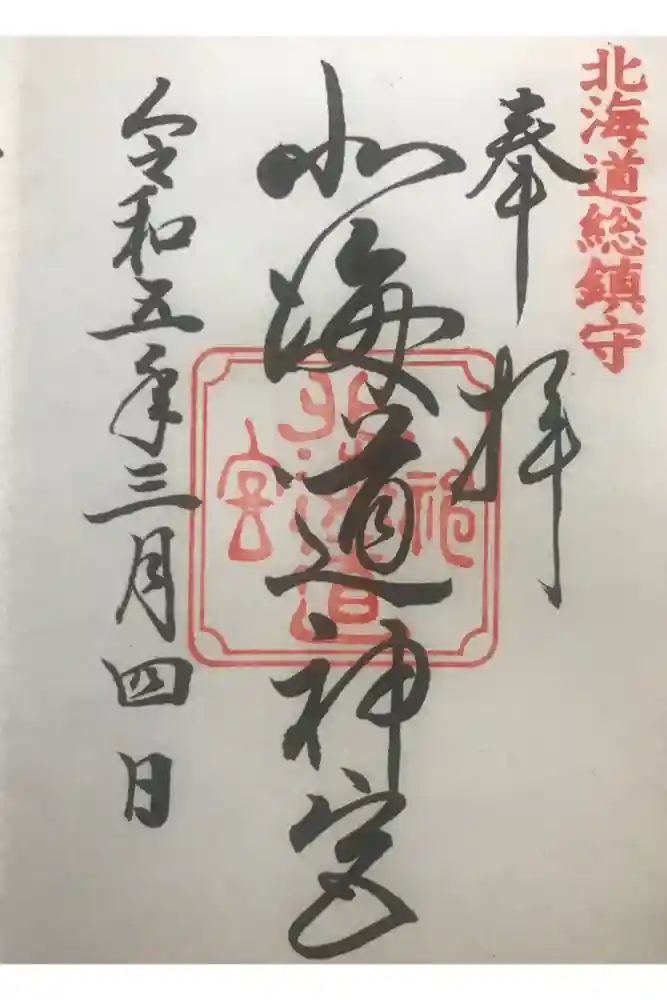 北海道総鎮守
奉拝
北海道神宮
北海道神宮
令和五年三月四日